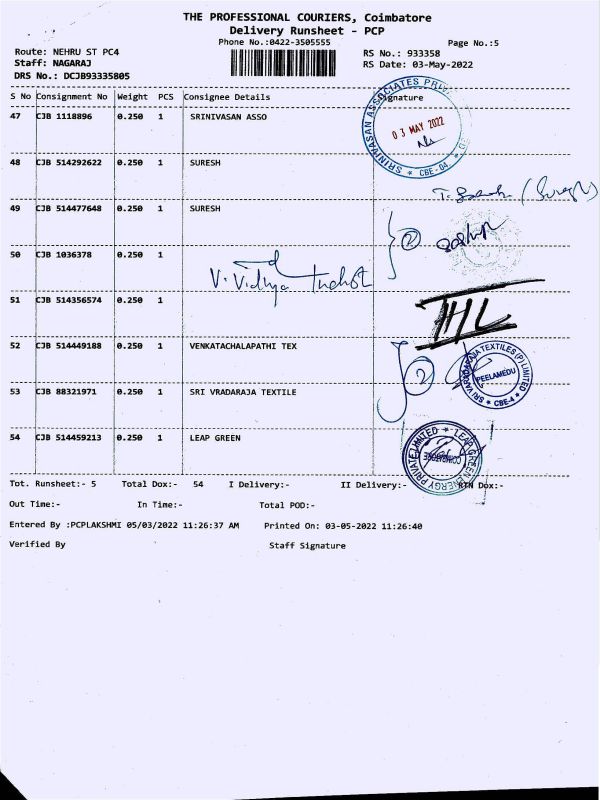 THE PROFESSIONAL COURIERS, Coimbatore
Delivery Runsheet - PCP
Phone No.:0422-3505555
Page No.:5
Route: NEHRU ST PC4
RS No.: 933358
Staff: NAGARAJ
RS Date: 03-May-2022
DRS No.: DCJB93335805
S No Consignment No Weight PCS Consignee Details Signature
47 CJB 1118896 0.250 1 SRINIVASAN ASSO
SRINIVASAN ASSOCIATES
03 MAY 2022
CBE-04
48 CJB 514292622 0.250 1 SURESH
(Suresh)
49 CJB 514477648 0.250 1 SURESH
2
50 CJB 1036378 0.250 1
V. Vidhya
51 CJB 514356574 0.250 1
52 CJB 514449188 0.250 1 VENKATACHALAPATHI TEX
2
SRI VARADARAJA TEXTILES (P) LIMITED
PEELAMEDU
CBE-4
53 CJB 88321971 0.250 1 SRI VRADARAJA TEXTILE
54 CJB 514459213 0.250 1 LEAP GREEN
LEAP GREEN ENERGY PRIVATE LIMITED
COIMBATORE
Tot. Runsheet:- 5 Total Dox:- 54 I Delivery:- II Delivery:- RTN Dox:-
Out Time:- In Time:- Total POD:-
Entered By :PCPLAKSHMI 05/03/2022 11:26:37 AM Printed On: 03-05-2022 11:26:40
Verified By Staff Signature